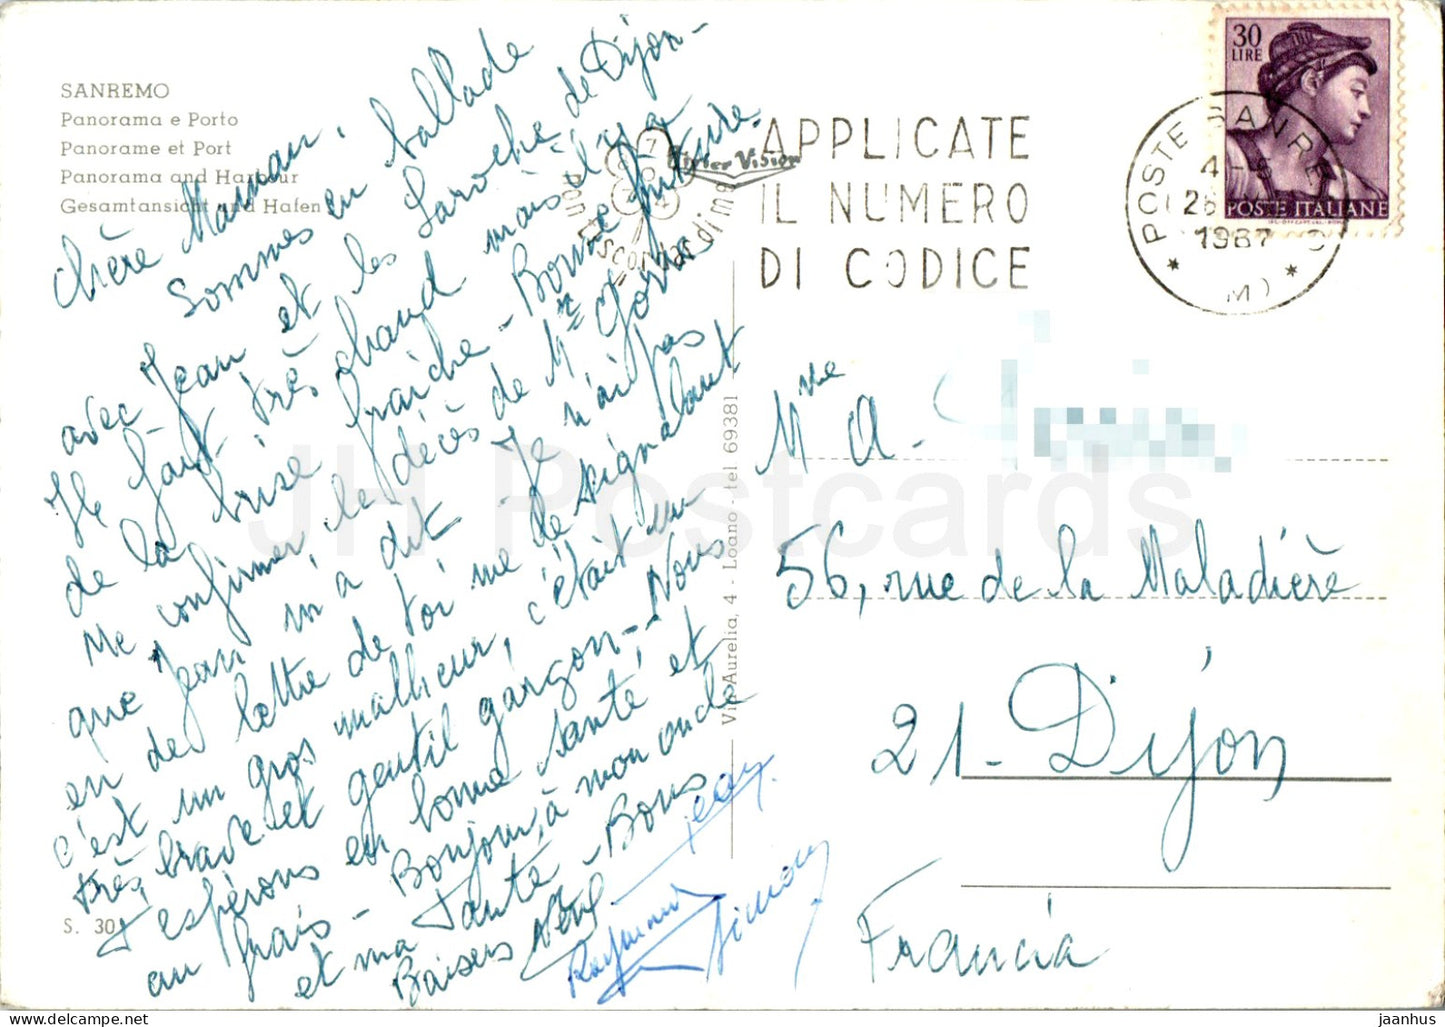 SANREMO
Panorama e Porto
Panorame et Port
Panorama and Harbour
Gesamtansicht und Hafen
Chère Maman,
Sommes en ballade
avec Jean et les Laroche de Dijon-
Il fait très chaud mais il y a
de la brise fraiche - Bonne friture.
Me confirmer le décès de Mr
que Jean m'a dit - Je n'ai pas
eu de lettre de toi me le signalant
c'est un gros malheur, c'était un
très brave et gentil garçon - Nous
T'espérons en bonne santé et
au frais - Bonjour à mon oncle
et ma Tante - Bons
Baisers
Jean
Raymond
Simon
S. 30
Via Aurelia, 4 - Loano - tel 69381
APPLICATE
IL NUMERO
DI CODICE
30
LIRE
POSTE ITALIANE
POSTE SANRE
4-5
26
1967
(IM)
Mme A.
56, rue de la Maladière
21- Dijon
Francia
JH Postcards
jaanhus